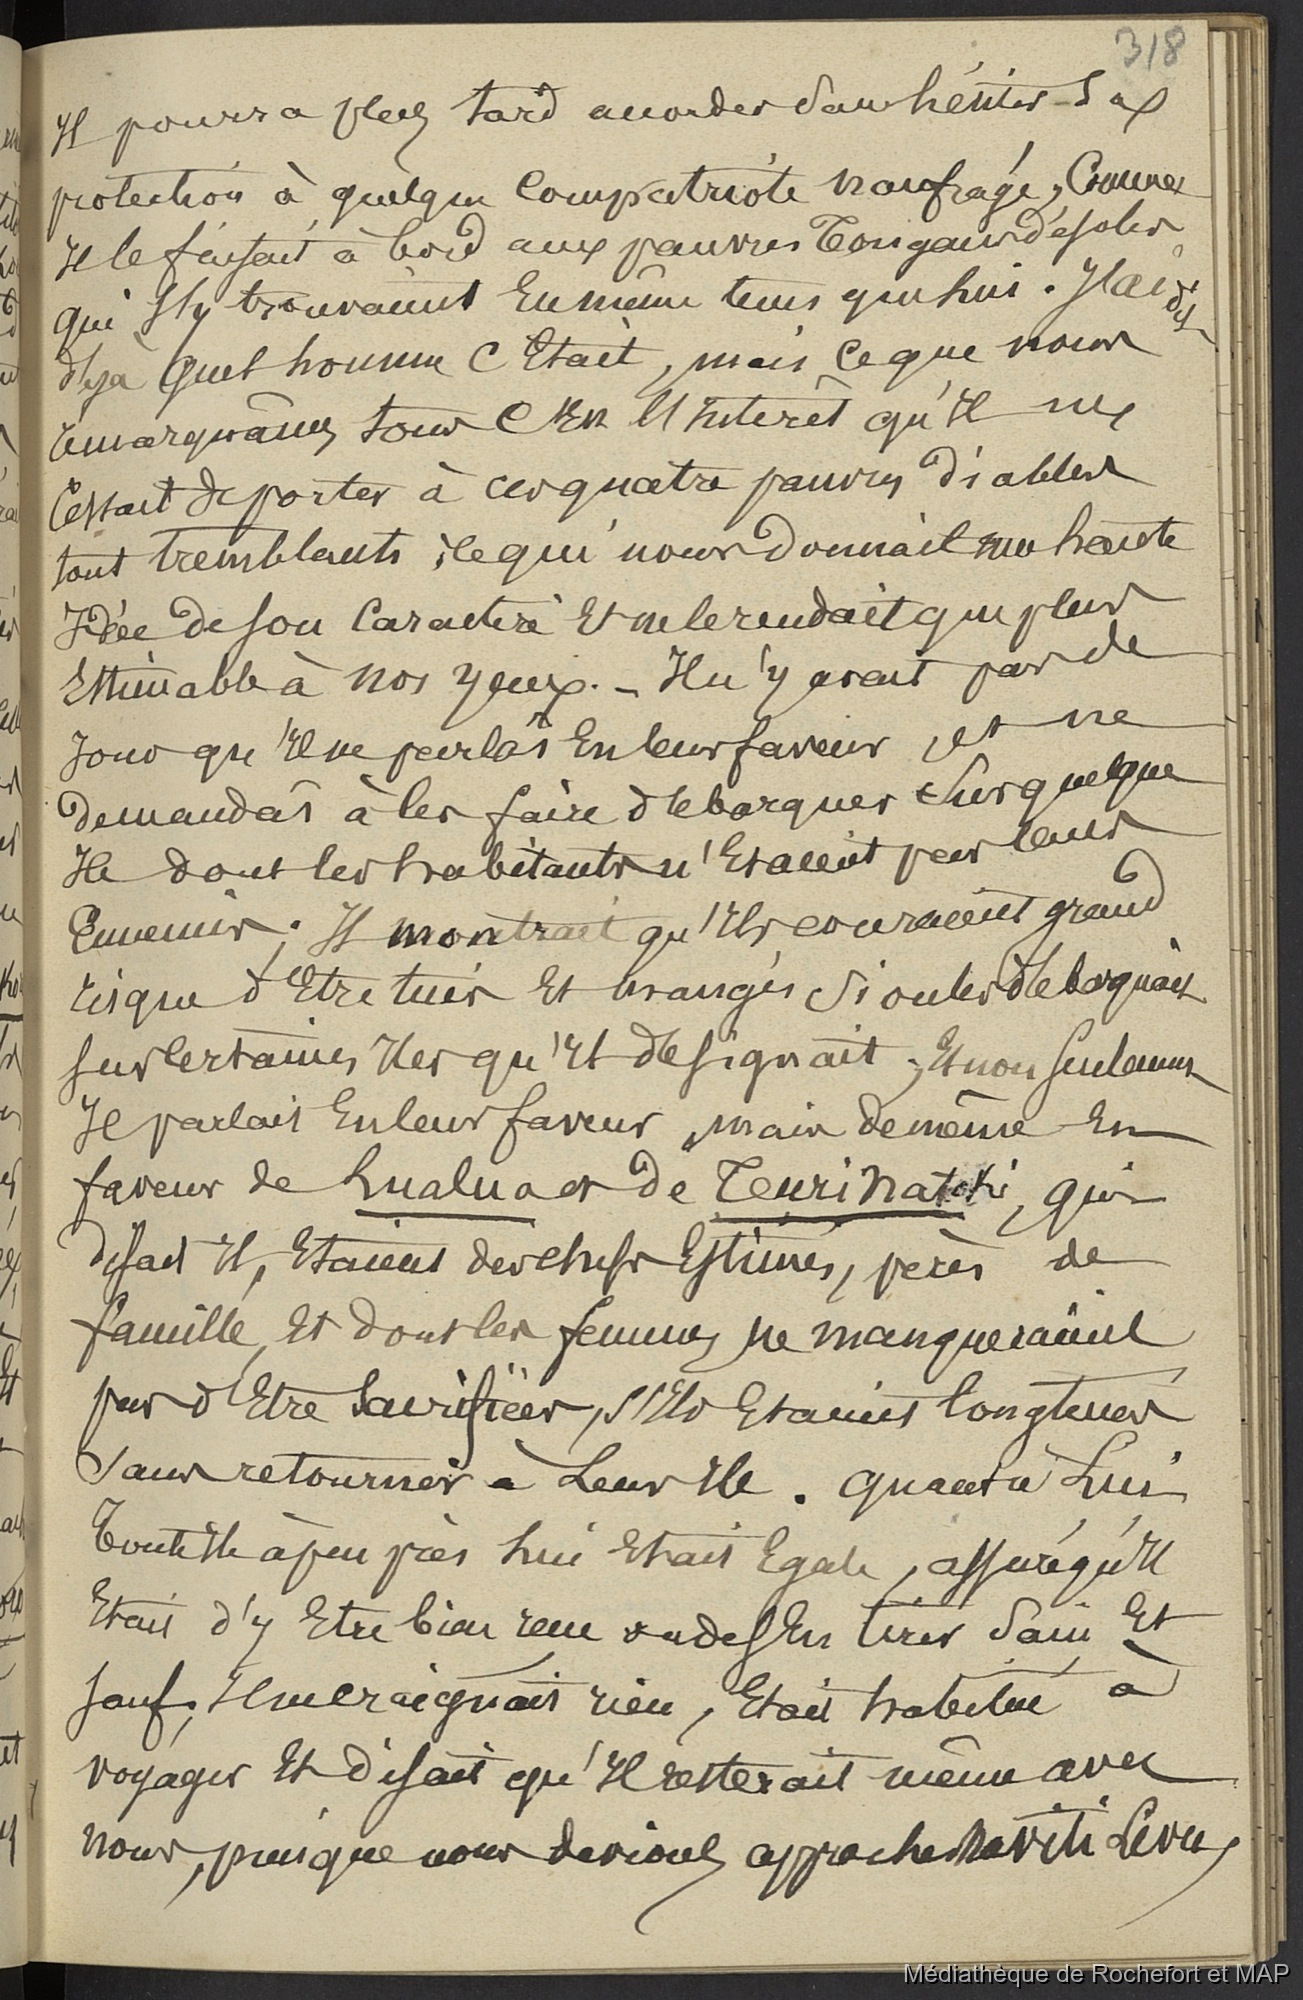 318
Il pourra plus tard accorder sans hésiter sa
protection à quelque compatriote naufragé, Comme
Il le faisait à bord aux pauvres Tongans désolés
qui s'y trouvaient En même tems que lui. J'ai dit
déjà quel homme C'Etait, mais ce que nous
remarquâmes tous C'Est l'Interêt qu'Il ne
Cessait de porter à ces quatre pauvres diables
tout tremblants, ce qui nous donnait une haute
Idée de son Caractère Et ne le rendait que plus
Estimable à nos yeux. - Il n'y avait pas de
Jour qu'Il ne parlât En leur faveur, et ne
demandât à les faire débarquer sur quelque
Ile dont les habitants n'Etaient pas leurs
Ennemis; Il montrait qu'Ils couraient grand
risque d'Etre tués Et mangés Si on les débarquait
sur certaines Iles qu'Il désignait; Et non seulement
Il parlait En leur faveur, mais de même En
faveur de Lualua et de Tourinatoki, qui
disait Il, Etaient des chefs Estimés, pères de
famille, Et dont les femmes ne manqueraient
pas d'Etre Sacrifiées, s'Ils Etaient longtems
sans retourner à Leur Ile. quant à Lui
Toute Ile à peu près lui Etait Egale, assuré qu'Il
Etait d'y Etre bien reçu ou de s'En tirer Sain Et
sauf; Il ne craignait rien, Etait habitué à
voyager Et disait qu'Il resterait même avec
nous, puisque nous devions approcher Naviti Levu,
Médiathèque de Rochefort et MAP